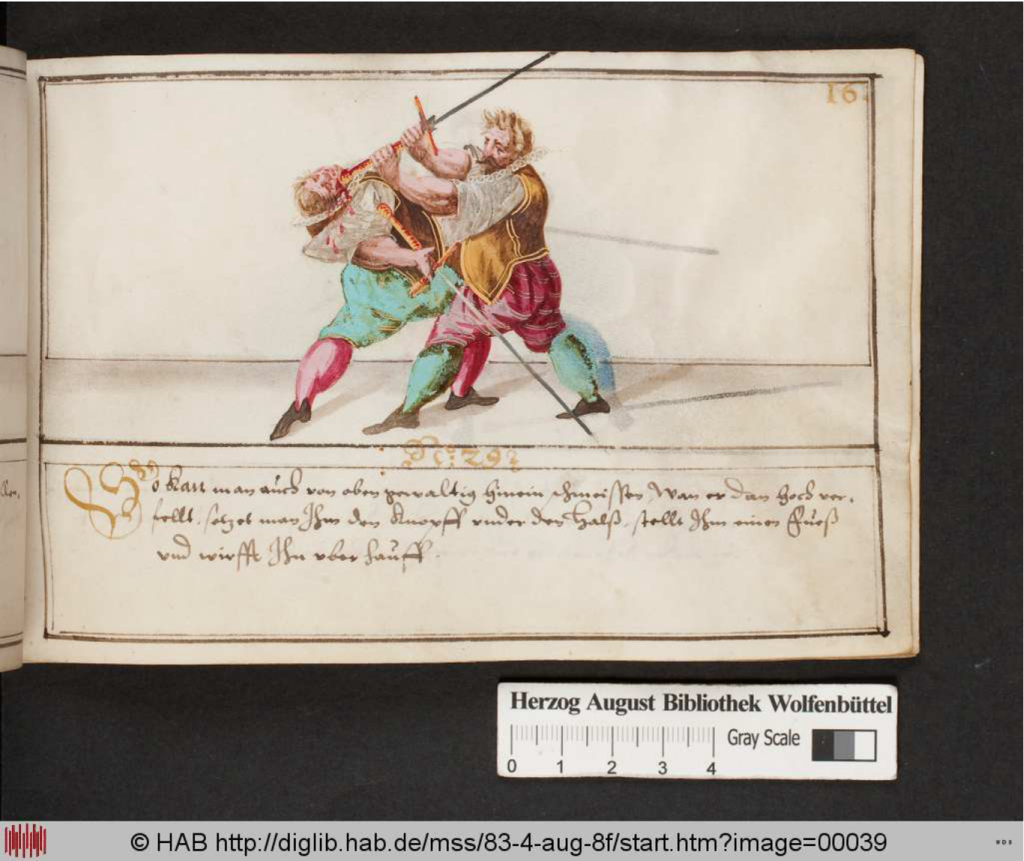 16
No: 29
So kan man auch von oben gewaltig hinein schmeissen, Wan er dan hoch ver,
sellt, setzet man Ihm den Knopff vnder den Halß, stellt Ihm einen Fueß
vnd wirfft Ihn vber hauff.
Herzog August Bibliothek Wolfenbüttel
Gray Scale
0 1 2 3 4
© HAB http://diglib.hab.de/mss/83-4-aug-8f/start.htm?image=00039